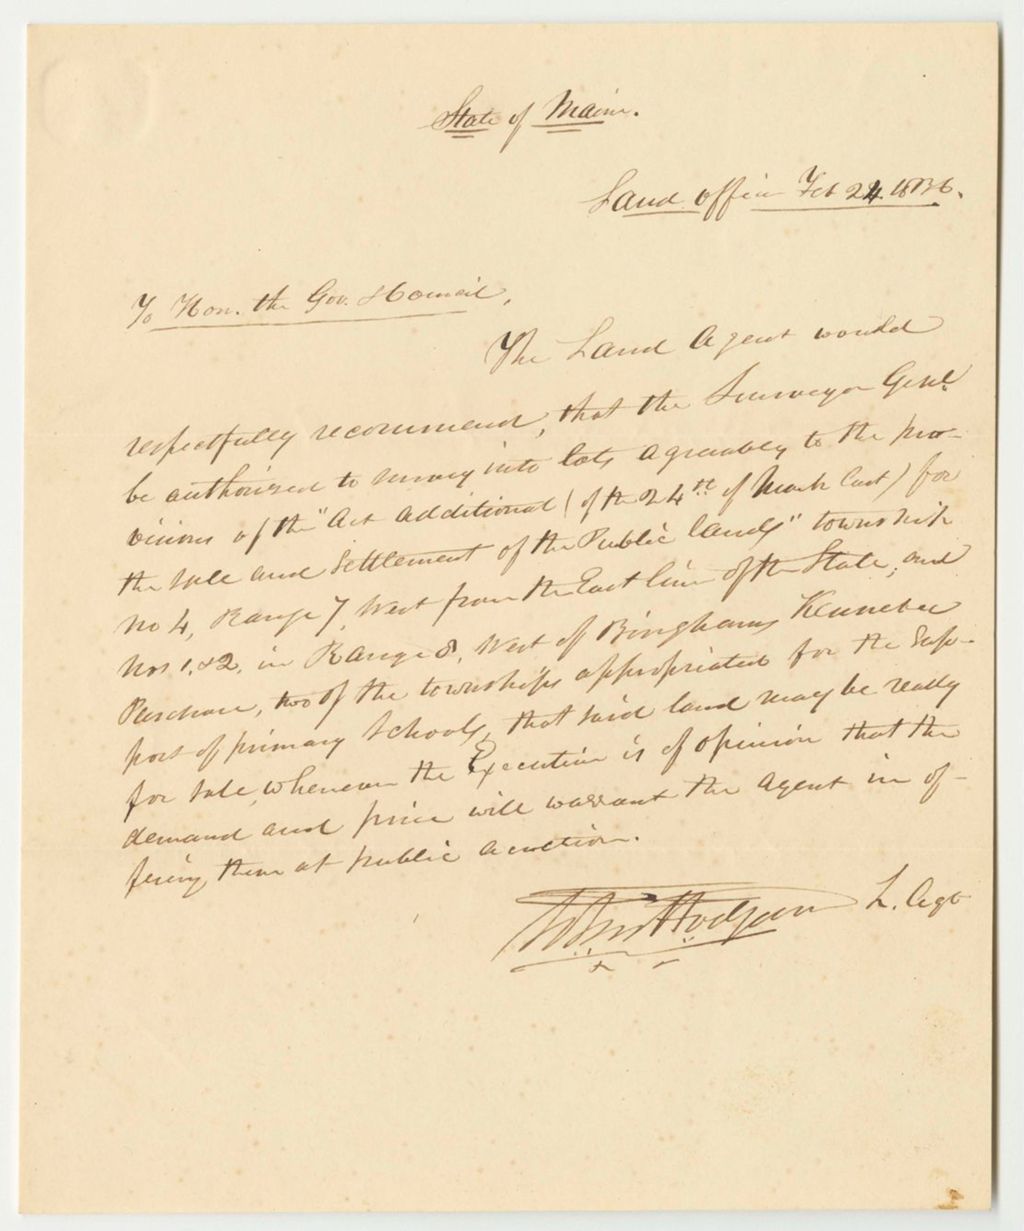 State of Maine.
Land office Feb 24. 1836.
To Hon. the Gov. & Council,
The Land Agent would
respectfully recommend, that the Surveyor Genl.
be authorized to survey into lots agreeably to the pro-
visions of the "Act additional (of the 24th of March last) for
the sale and settlement of the Public lands" township
No 4, Range 7, West from the East line of the State, and
Nos 1. & 2, in Range 8, West of Binghams Kennebec
Purchase, two of the townships appropriated for the Sup-
port of primary Schools, that said land may be ready
for sale, whenever the Executive is of opinion that the
demand and price will warrant the agent in of-
fering them at public auction.
John Hodgdon L. Agt